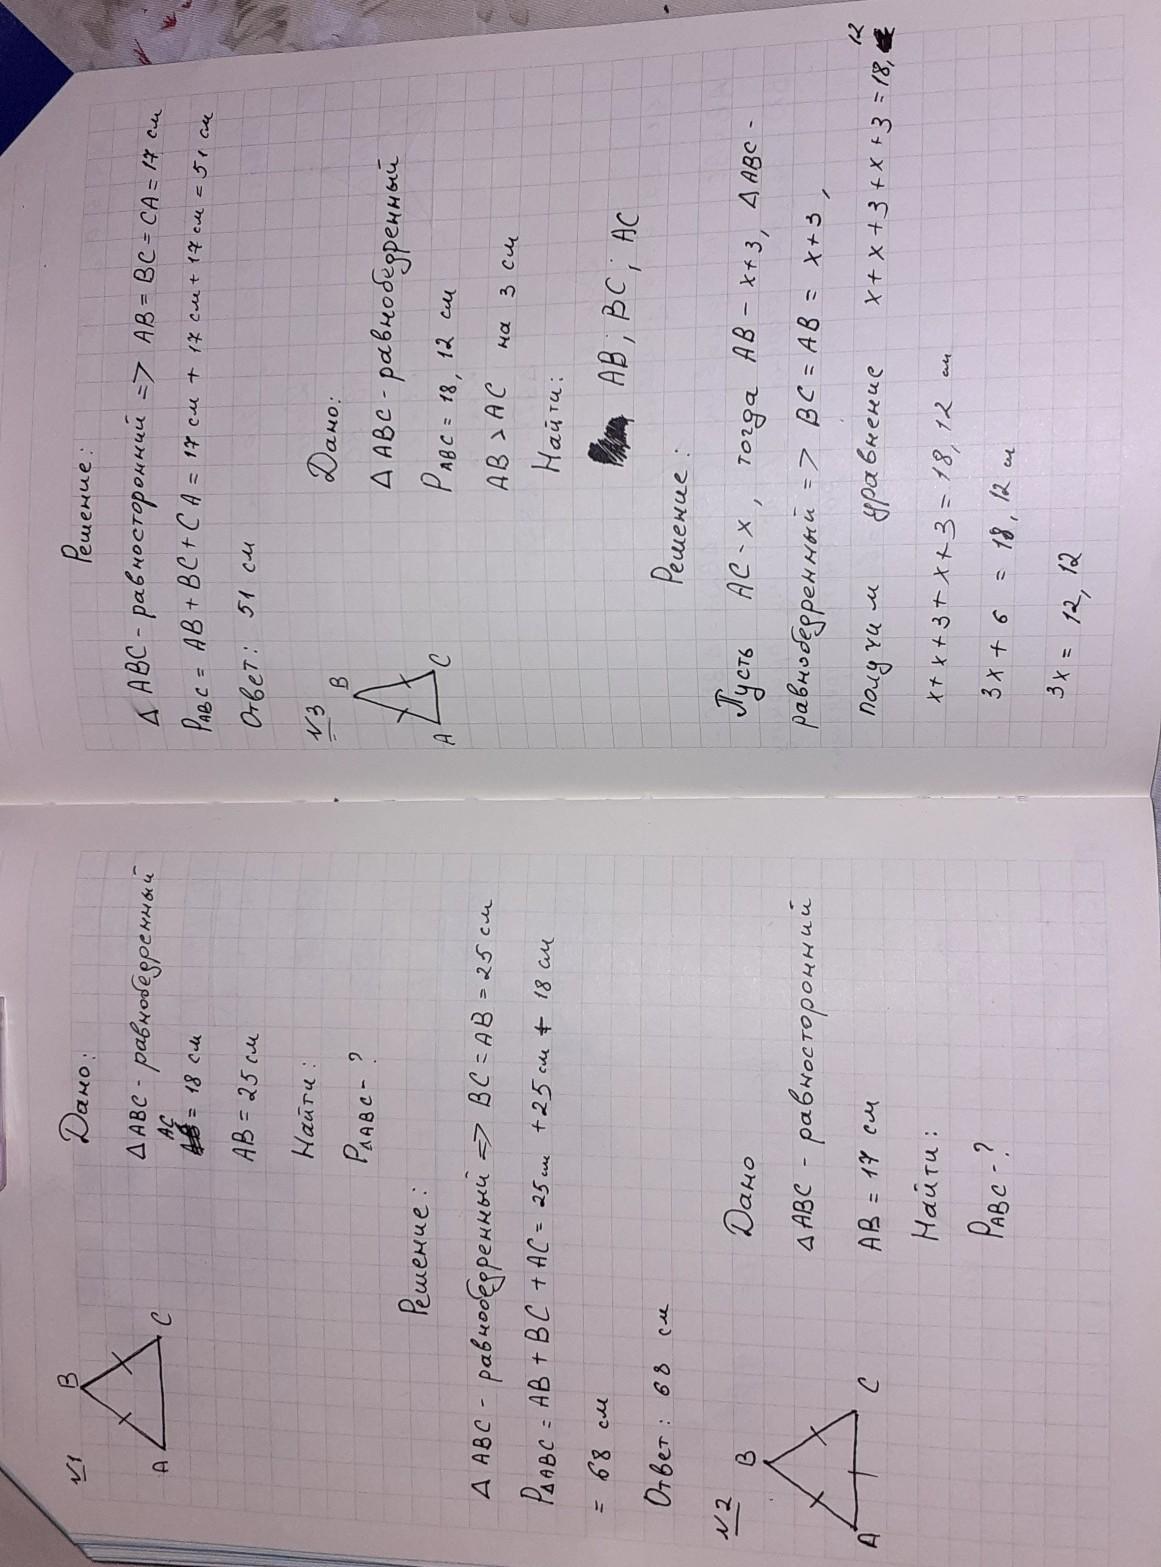 №1
B
A
C
Дано:
Δ ABC - равнобедренный
AC
= 18 см
AB = 25 см
Найти:
PΔABC - ?
Решение:
Δ ABC - равнобедренный => BC = AB = 25 см
PΔABC = AB + BC + AC = 25 см + 25 см + 18 см
= 68 см
Ответ: 68 см
№2
B
A
C
Дано
Δ ABC - равносторонний
AB = 17 см
Найти:
PABC - ?
Решение:
Δ ABC - равносторонний => AB = BC = CA = 17 см
PABC = AB + BC + CA = 17 см + 17 см + 17 см = 51 см
Ответ: 51 см
№3
B
A
C
Дано:
Δ ABC - равнобедренный
PABC = 18, 12 см
AB > AC на 3 см
Найти:
AB; BC; AC
Решение:
Пусть AC - x, тогда AB - x+3, Δ ABC -
равнобедренный => BC = AB = x+3,
получим уравнение x + x + 3 + x + 3 = 18, 12
x + x + 3 + x + 3 = 18, 12 см
3x + 6 = 18, 12 см
3x = 12, 12